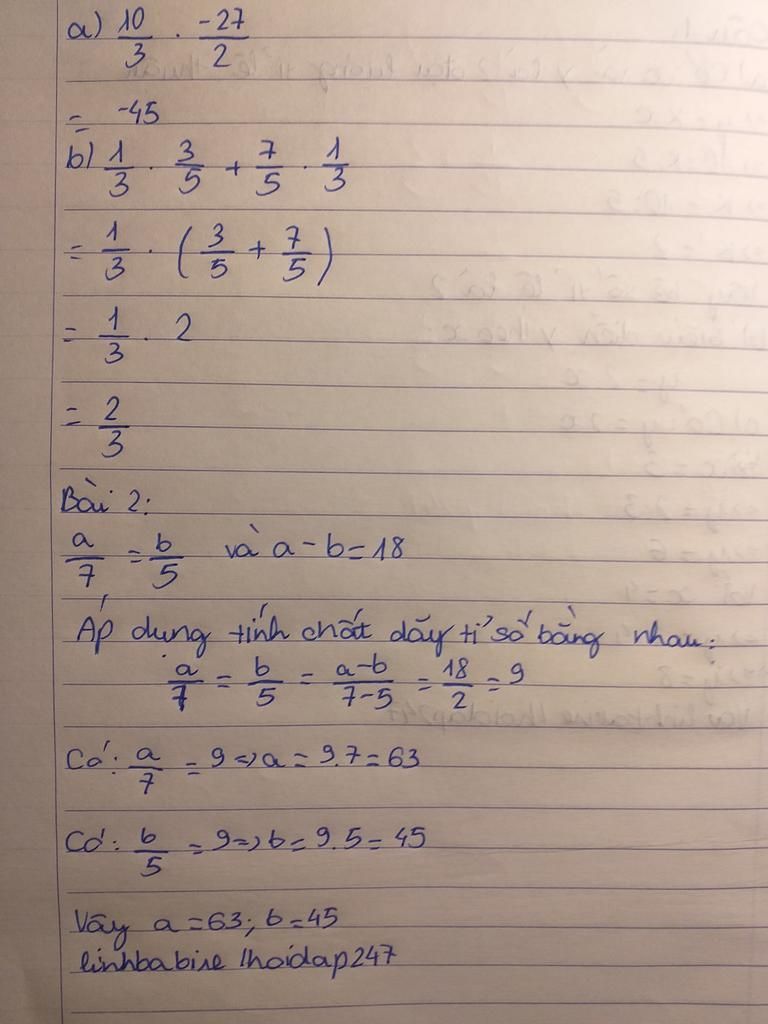 a) 10/3 . -27/2
= -45
b) 1/3 . 3/5 + 7/5 . 1/3
= 1/3 . (3/5 + 7/5)
= 1/3 . 2
= 2/3
Bài 2:
a/7 = b/5 và a-b=18
Áp dụng tính chất dãy tỉ số bằng nhau:
a/7 = b/5 = a-b/7-5 = 18/2 = 9
Có: a/7 = 9 => a = 9.7 = 63
Có: b/5 = 9 => b = 9.5 = 45
Vậy a = 63; b = 45
linhbabise /hoidap247